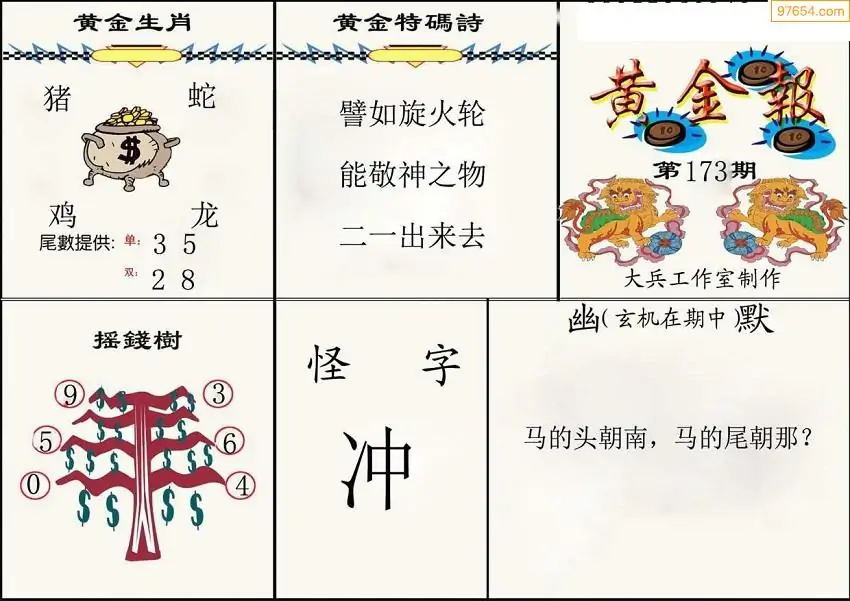 97654.com
黄金生肖
猪 蛇
$
鸡 龙
尾數提供: 单: 3 5
双: 2 8
黄金特碼詩
譬如旋火轮
能敬神之物
二一出来去
黄金報
第173期
大兵工作室制作
摇錢樹
9 3
5 6
0 4
怪 字
冲
幽(玄机在期中)默
马的头朝南，马的尾朝那？